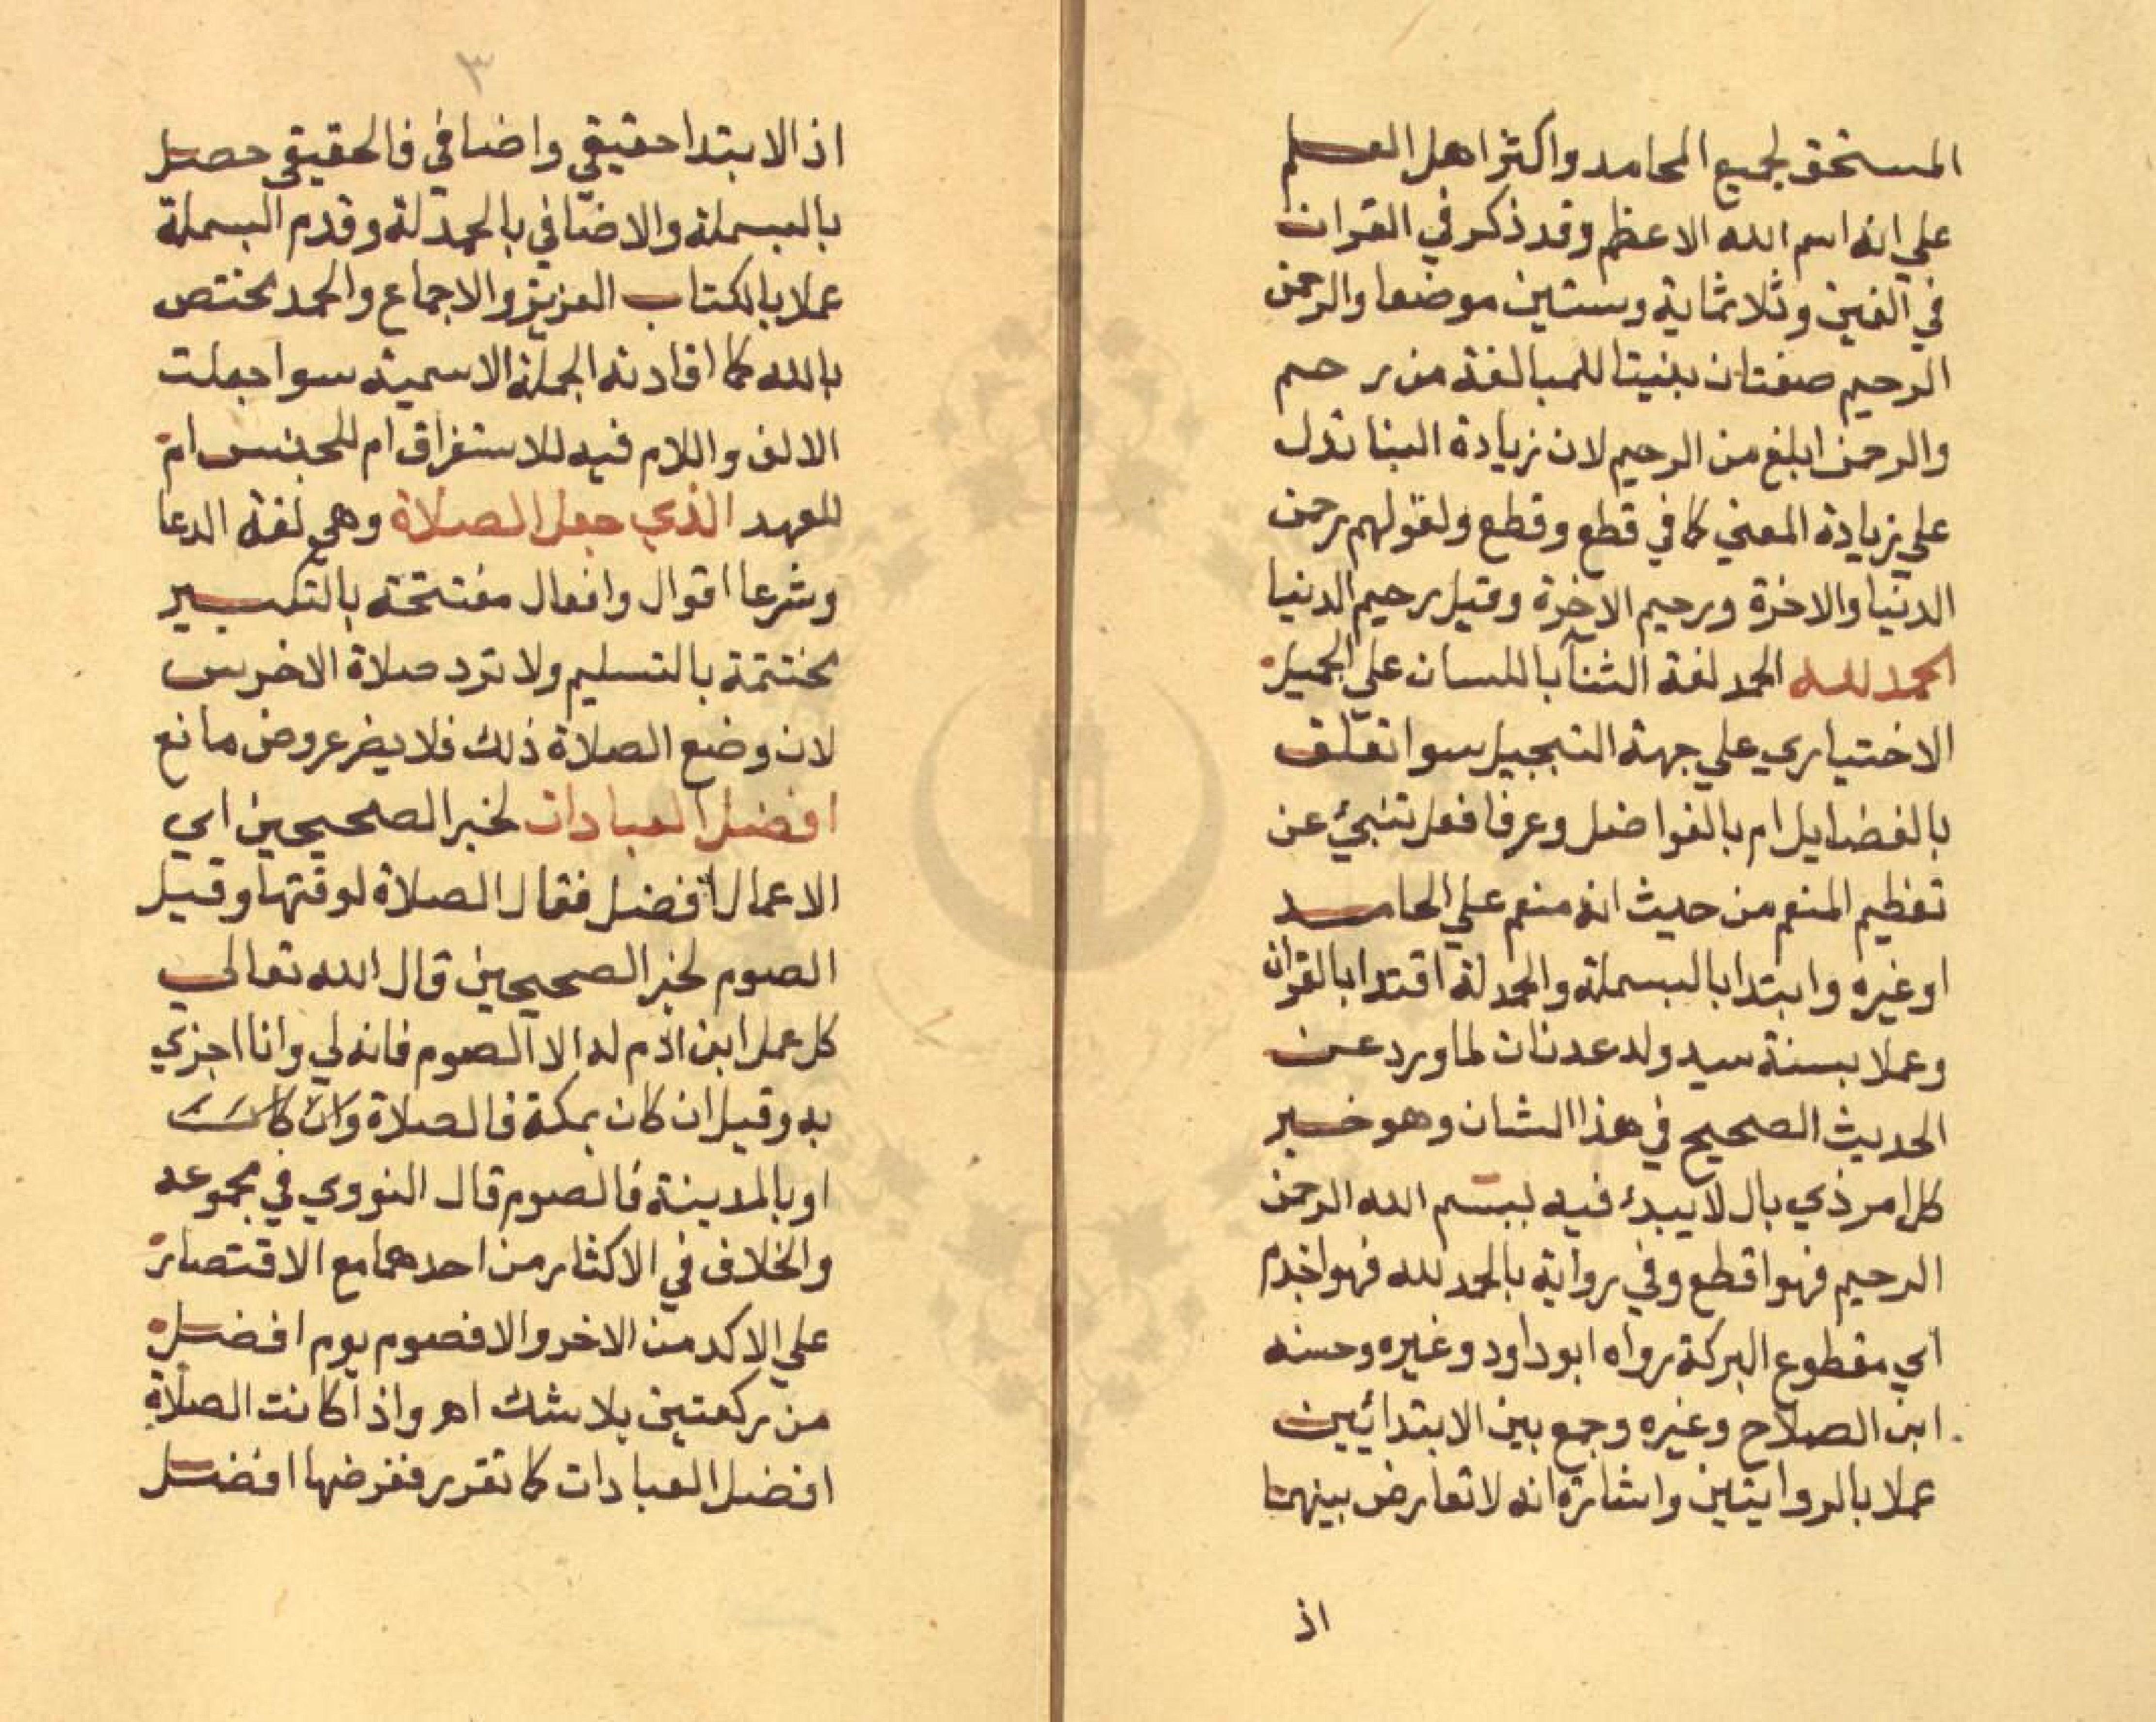 المستحق لجميع المحامد واكثر اهل العلم
علي انه اسم الله الاعظم وقد ذكر في القران
في الفين وثلاثماية وستين موضعا والرحمن
الرحيم صفتان بنيتا للمبالغة من رحم
والرحمن ابلغ من الرحيم لان زيادة البنا تدل
علي زيادة المعني كما في قطع وقطع ولقولهم رحمن
الدنيا والاخرة ورحيم الاخرة وقيل رحيم الدنيا
الحمد لله الحمد لغة الثنآ باللسان علي الجميل
الاختياري علي جهة التبجيل سوا تعلق
بالفضايل ام بالفواضل وعرفا فعل تنبئ عن
تعظيم المنعم من حيث انه منعم علي الحامد
او غيره وابتدا بالبسملة والحمدلة اقتدا بالقران
وعملا بسنة سيد ولد عدنان لما ورد عن
الحديث الصحيح في هذا الشان وهو خبر
كل امر ذي بال لا يبدء فيه ببسم الله الرحمن
الرحيم فهو اقطع وفي رواية بالحمد لله فهو اجذم
اي مقطوع البركة رواه ابو داود وغيره وحسنه
ابن الصلاح وغيره وجمع بين الابتدائيين
عملا بالروايتين واشارة انه لا تعارض بينهما
اذ
٣
اذ الابتدا حقيقي واضافي فالحقيقي حصل
بالبسملة والاضافي بالحمدلة وقدم البسملة
عملا بالكتاب العزيز والاجماع والحمد مختص
بالله كما افادته الجملة الاسمية سوا جعلت
الالف واللام فيه للاستغراق ام للجنس ام
للعهد الذي جعل الصلاة وهي لغة الدعا
وشرعا اقوال وافعال مفتتحة بالتكبير
مختتمة بالتسليم ولا ترد صلاة الاخرس
لان وضع الصلاة ذلك فلا يضر عروض مانع
افضل العبادات لخبر الصحيحين اي
الاعمال افضل فقال الصلاة لوقتها وقيل
الصوم لخبر الصحيحين قال الله تعالي
كل عمل ابن ادم له الا الصوم فانه لي وانا اجزي
به وقيل ان كان بمكة فالصلاة وان كانت
او بالمدينة فالصوم قال النووي في مجموعه
والخلاف في الاكثار من احدهما مع الاقتصار
علي الاكد من الاخر والا فصوم يوم افضل
من ركعتين بلا شك اهـ واذا كانت الصلاة
افضل العبادات كما تقرر ففرضها افضل